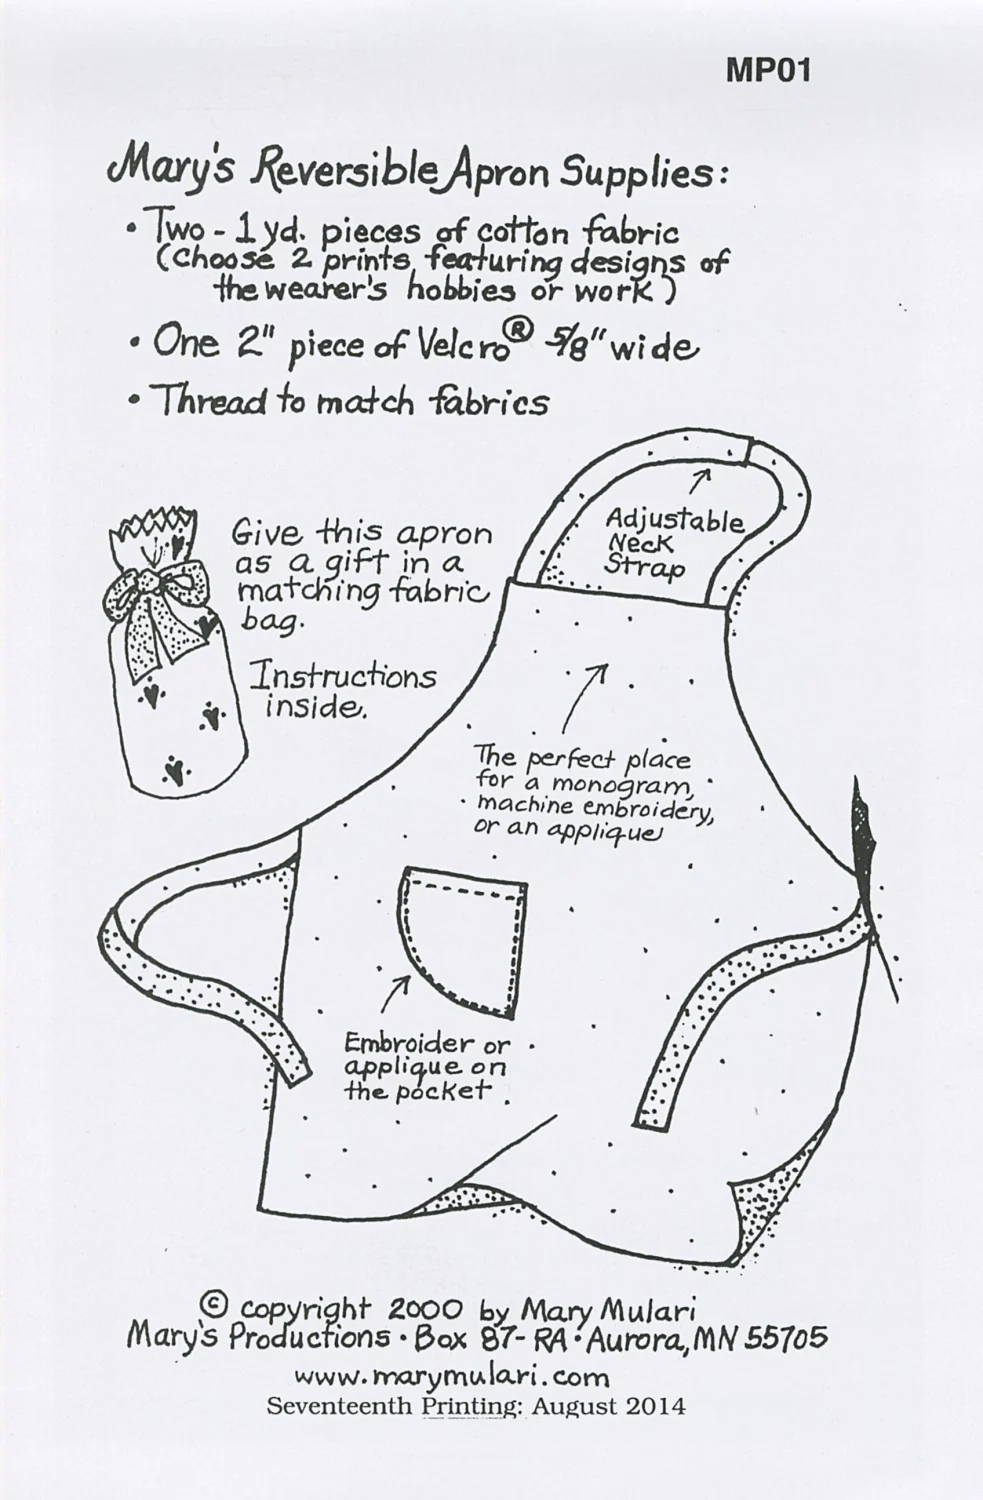 MP01
Mary's Reversible Apron Supplies:
• Two - 1 yd. pieces of cotton fabric
(Choose 2 prints featuring designs of
the wearer's hobbies or work)
• One 2" piece of Velcro® 5/8" wide
• Thread to match fabrics
Adjustable
Neck
Strap
Give this apron
as a gift in a
matching fabric
bag.
Instructions
inside.
The perfect place
for a monogram,
machine embroidery,
or an applique
Embroider or
applique on
the pocket.
© copyright 2000 by Mary Mulari
Mary's Productions • Box 87-RA • Aurora, MN 55705
www.marymulari.com
Seventeenth Printing: August 2014